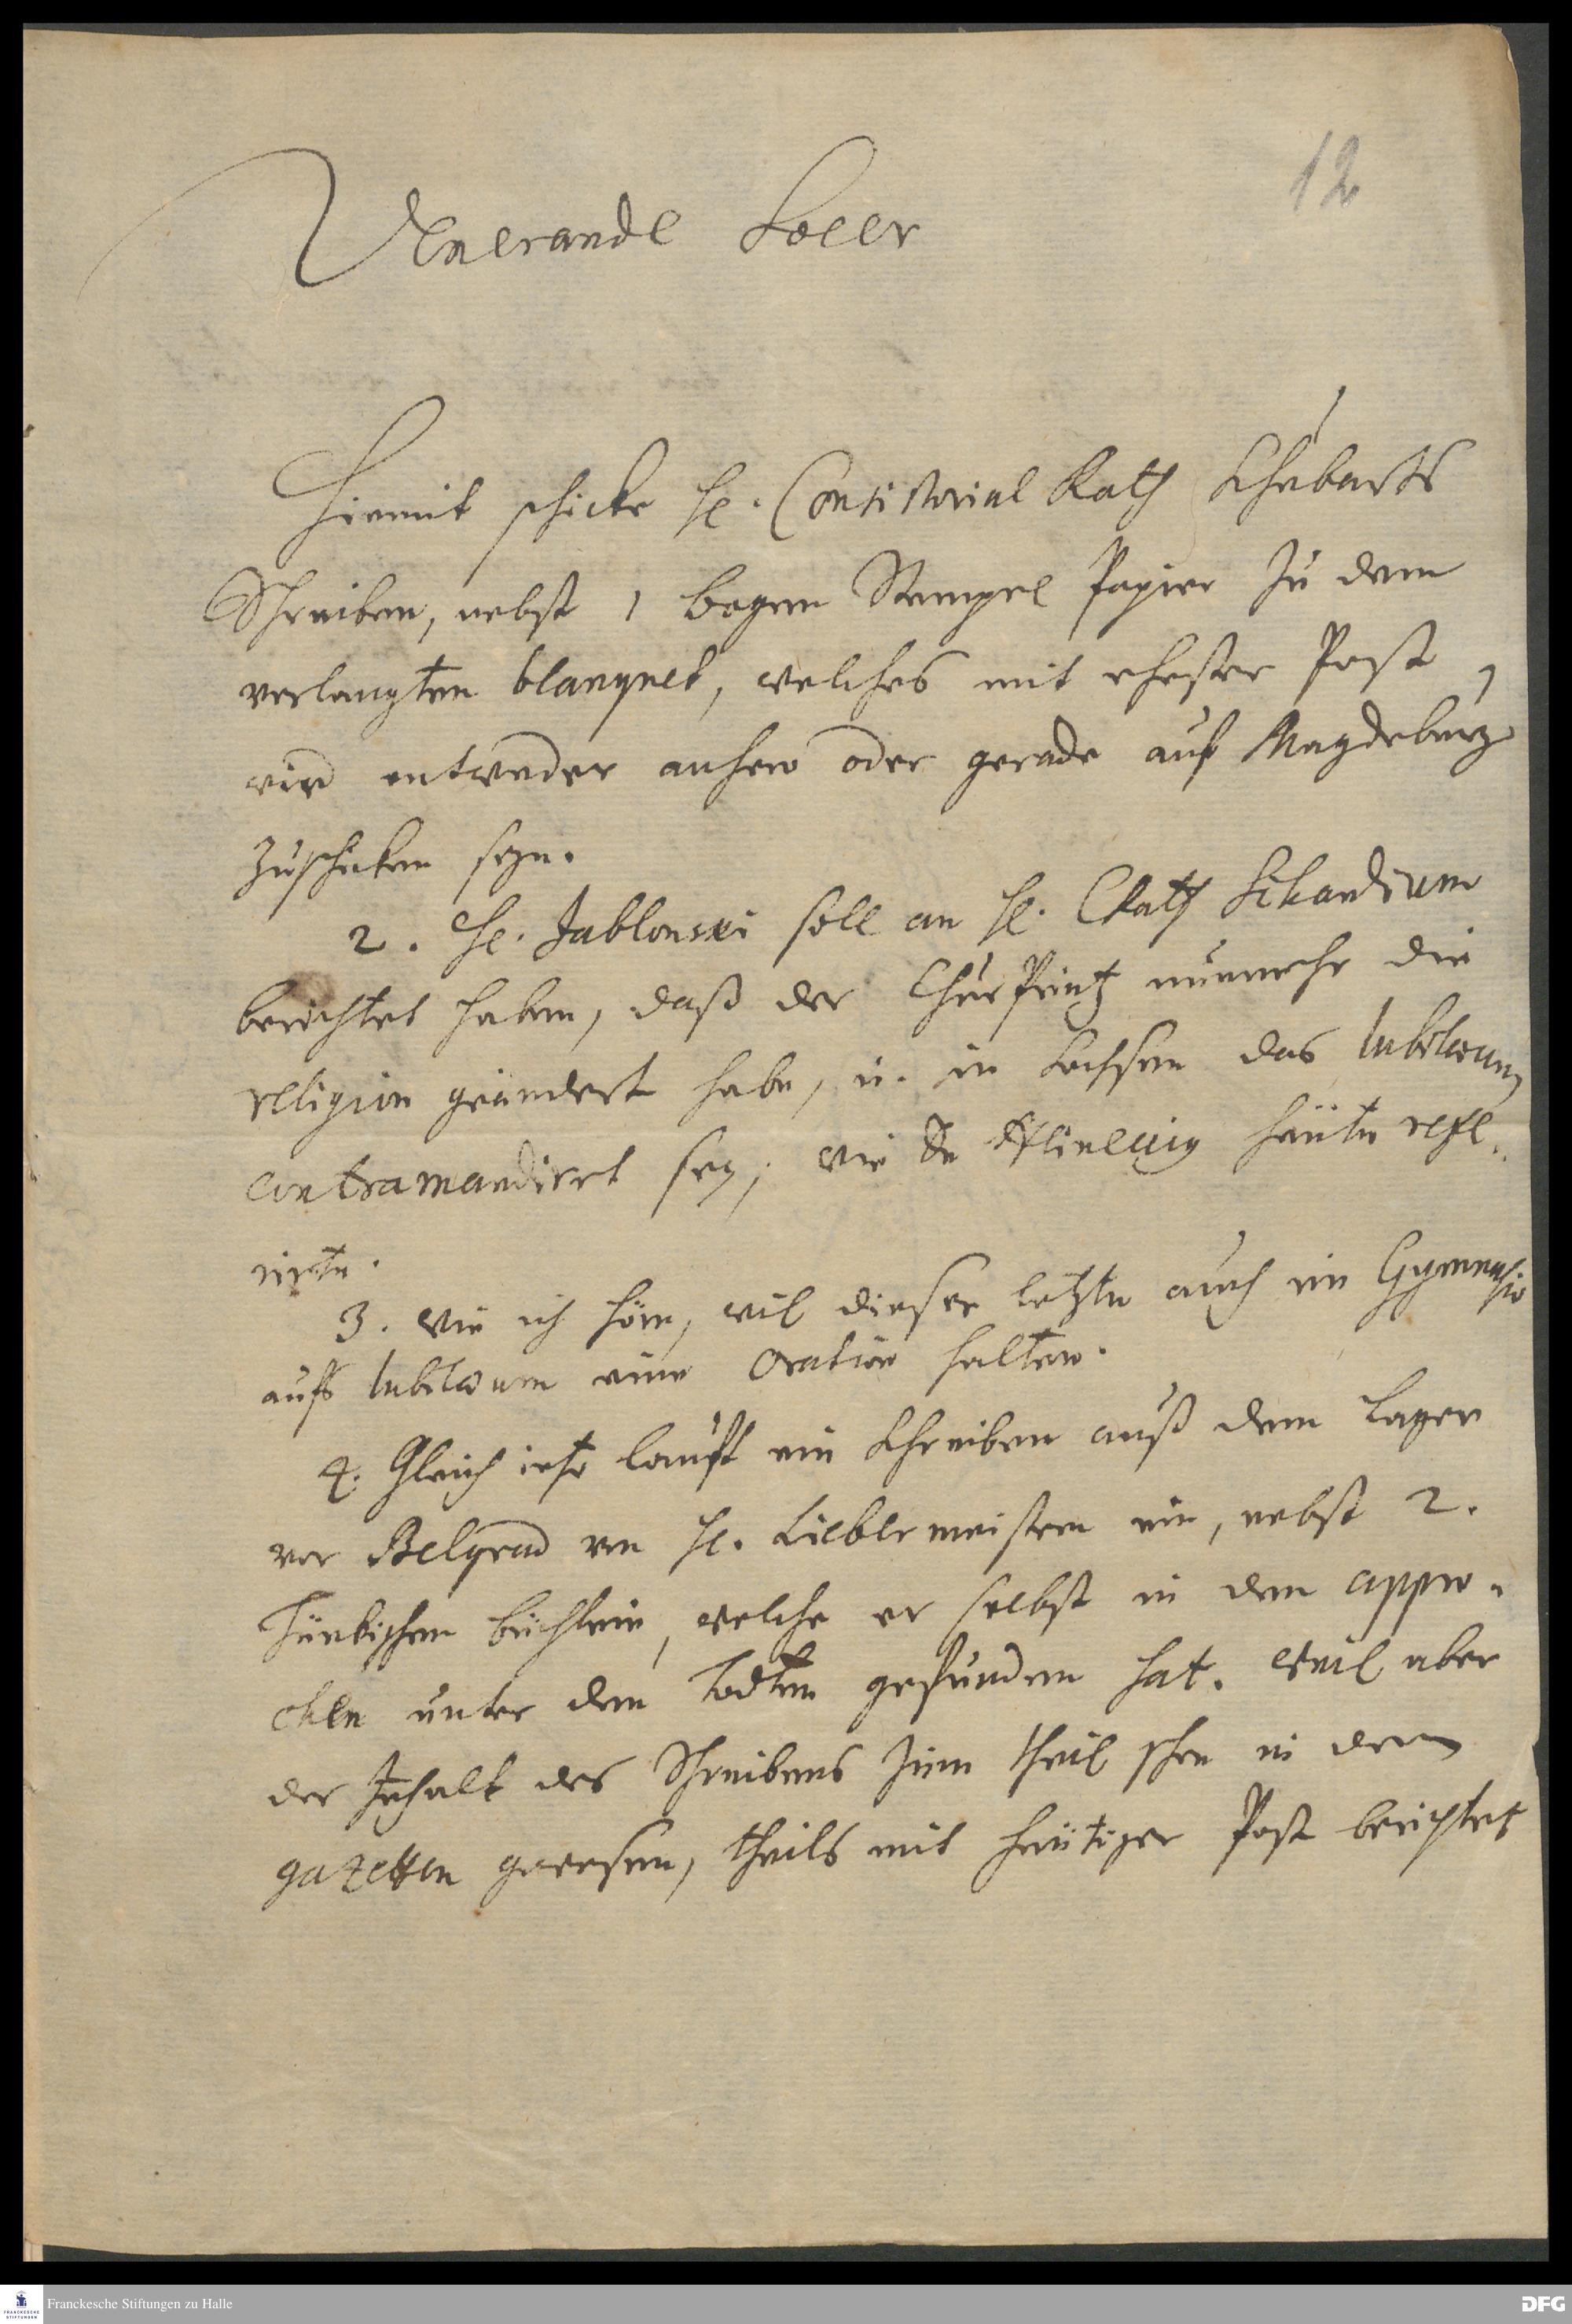 12
Venerande Socer
Hiemit schicke H. Consistorial Rath Schubarts
Schreiben, nebst 1 bogen Stempel Papier zu dem
verlangten blanquet, welches mit ehester Post
wird entweder anhero oder gerade auf Magdeburg
zuschicken seyn.
2. H. Jablonski soll an H. CRath Schardium
berichtet haben, daß der ChurPrintz nunmehr die
religion geändert habe, u. in Sachsen das Iubilaeum
contramandirt sey; wie De heute refe-
rirte.
3. Wie ich höre, will dieser letzte auch im Gymnasio
aufs Iubilaeum eine Oration halten.
4. Gleich ietzo lauft ein Schreiben auß dem Lager
vor Belgrad von H. Lieblermeistern ein, nebst 2.
Türkischen büchlein, welche er selbst in den appro-
chen unter den Todten gefunden hat. Weil aber
der Inhalt des Schreibens zum theil schon in denen
gazetten gewesen, theils mit heutiger Post berichtet
Franckesche Stiftungen zu Halle
FRANCKESCHE STIFTUNGEN
DFG